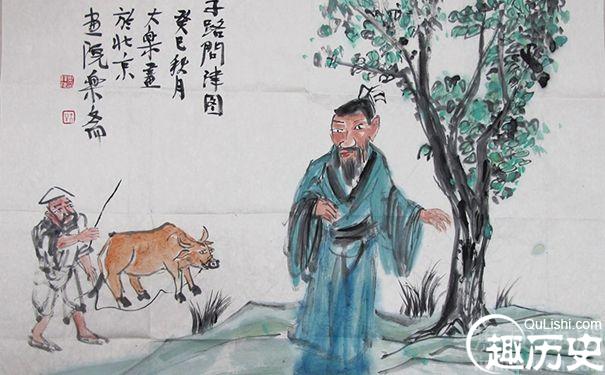 子路問津图
癸巳秋月
大樂畫
於北京
画院樂斋
QuLishi.com
趣历史